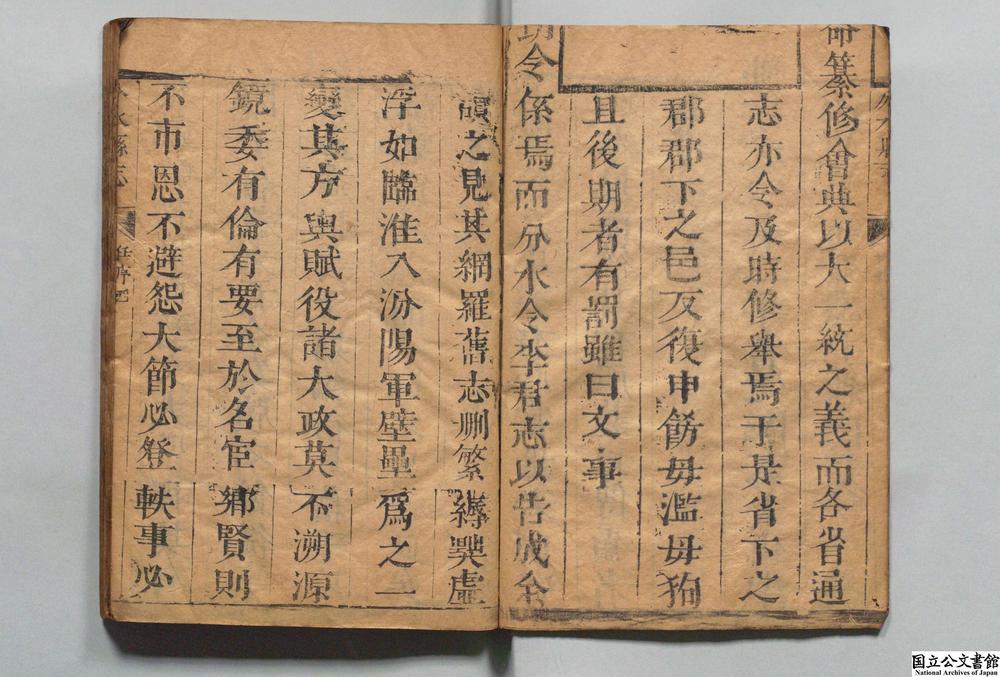 命纂修會典以大一統之義而各省通
志亦令及時修舉焉于是省下之
郡郡下之邑反復申飭毋濫毋狥
且後期者有罰雖曰文事
功令係焉而分水令李君志以告成余
讀之見其網羅舊志刪繁
浮如臨淮入汾陽軍壁壘爲之一
變其方輿賦役諸大政莫不溯源
鏡委有倫有要至於名宦鄉賢則
不市恩不避怨大節必登軼事必
水縣志
国立公文書館
National Archives of Japan